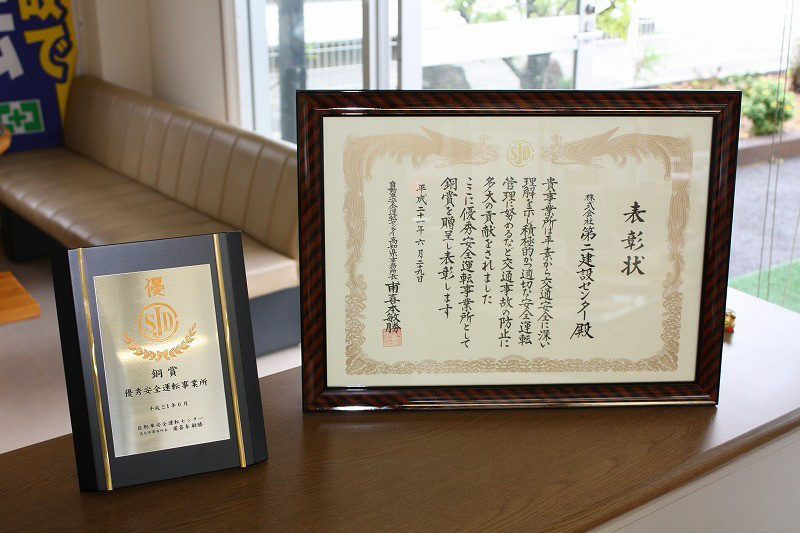 故で
優
SJD
銅賞
優秀安全運転事業所
平成21年6月
自動車安全運転センター
SJD
表彰状
株式会社 第二建設センター殿
貴事業所は平素から交通安全に深い
理解を示し積極的かつ適切な安全運転
管理に努めるなど交通事故の防止に
多大の貢献をされました
ここに優秀安全運転事業所として
銅賞を贈呈し表彰します
平成二十一年六月二九日
自動車安全運転センター高知県事務所長 甫喜本敏勝